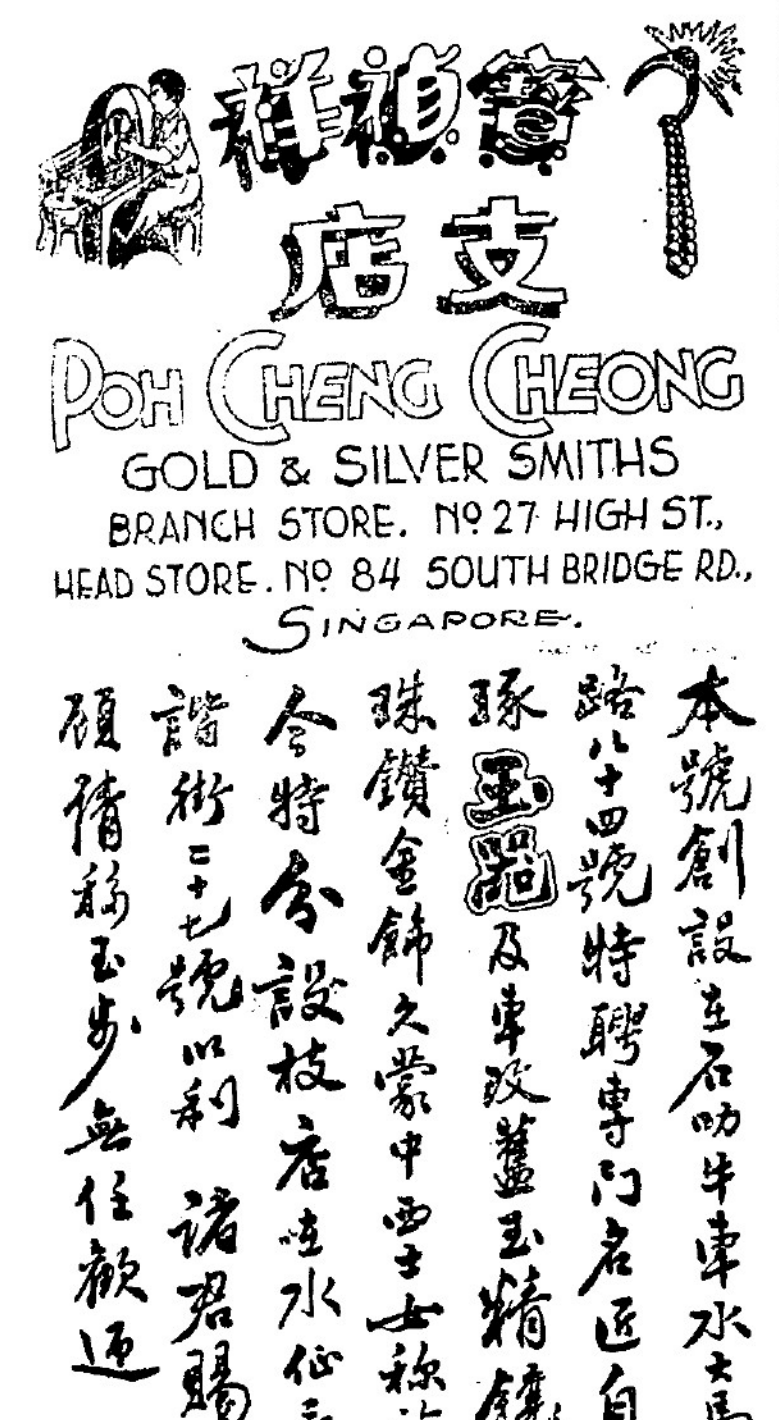 寶禎祥
支店
POH CHENG CHEONG
GOLD & SILVER SMITHS
BRANCH STORE. Nº 27 HIGH ST.,
HEAD STORE. Nº 84 SOUTH BRIDGE RD.,
SINGAPORE.
本號創設在石叻牛車水大馬
路八十四號特聘專門名匠自
琢玉器及車改舊玉精鑲
珠鑽金飾久蒙中西士女称
今特分設枝店水仙
諧街二十七號以利 諸君賜
顧請移玉步無任歡迎